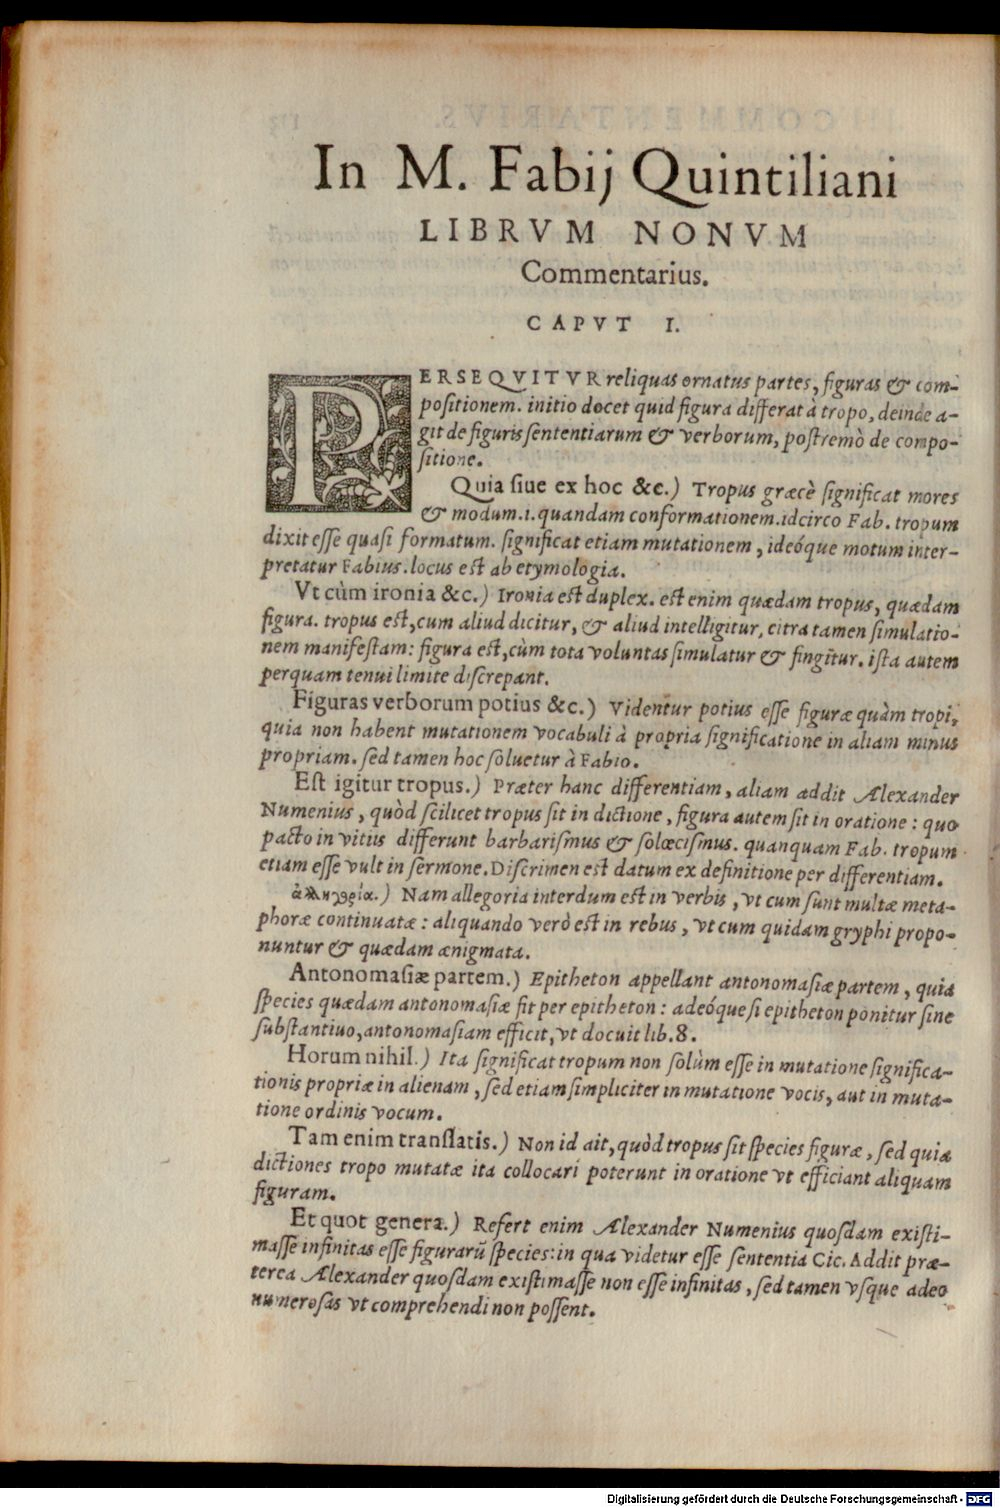 In M. Fabij Quintiliani
LIBRVM NONVM
Commentarius.
CAPVT I.
PERSEQVITVR reliquas ornatus partes, figuras & com-
positionem. initio docet quid figura differat à tropo, deinde a-
git de figuris sententiarum & verborum, postremò de compo-
sitione.
Quia siue ex hoc &c.) Tropus græcè significat mores
& modum .i. quandam conformationem. idcirco Fab. tropum
dixit esse quasi formatum. significat etiam mutationem, ideóque motum inter-
pretatur Fabius. locus est ab etymologia.
Vt cùm ironia &c.) Ironia est duplex. est enim quædam tropus, quædam
figura. tropus est, cum aliud dicitur, & aliud intelligitur, citra tamen simulatio-
nem manifestam: figura est, cùm tota voluntas simulatur & fingitur. ista autem
perquam tenui limite discrepant.
Figuras verborum potius &c.) Videntur potius esse figuræ quàm tropi,
quia non habent mutationem vocabuli à propria significatione in aliam minus
propriam. sed tamen hoc soluetur à Fabio.
Est igitur tropus.) Præter hanc differentiam, aliam addit Alexander
Numenius, quòd scilicet tropus sit in dictione, figura autem sit in oratione: quo
pacto in vitiis differunt barbarismus & solœcismus. quanquam Fab. tropum
etiam esse vult in sermone. Discrimen est datum ex definitione per differentiam.
ἀλληγορία.) Nam allegoria interdum est in verbis, vt cum sunt multæ meta-
phoræ continuatæ: aliquando verò est in rebus, vt cum quidam gryphi propo-
nuntur & quædam ænigmata.
Antonomasiæ partem.) Epitheton appellant antonomasiæ partem, quia
species quædam antonomasiæ fit per epitheton: adeóque si epitheton ponitur sine
substantiuo, antonomasiam efficit, vt docuit lib. 8.
Horum nihil.) Ita significat tropum non solùm esse in mutatione significa-
tionis propriæ in alienam, sed etiam simpliciter in mutatione vocis, aut in muta-
tione ordinis vocum.
Tam enim translatis.) Non id ait, quòd tropus sit species figuræ, sed quia
dictiones tropo mutatæ ita collocari poterunt in oratione vt efficiant aliquam
figuram.
Et quot genera.) Refert enim Alexander Numenius quosdam existi-
masse infinitas esse figurarũ species: in qua videtur esse sententia Cic. Addit præ-
terea Alexander quosdam existimasse non esse infinitas, sed tamen vsque adeo
numerosas vt comprehendi non possent.
Digitalisierung gefördert durch die Deutsche Forschungsgemeinschaft - DFG